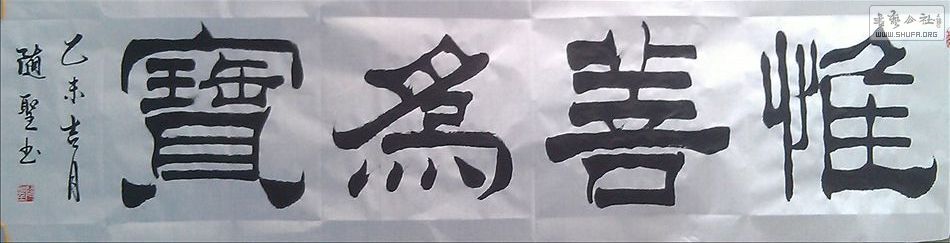 惟善為寶
乙未吉月
隨聖书
书艺公社
WWW.SHUFA.ORG